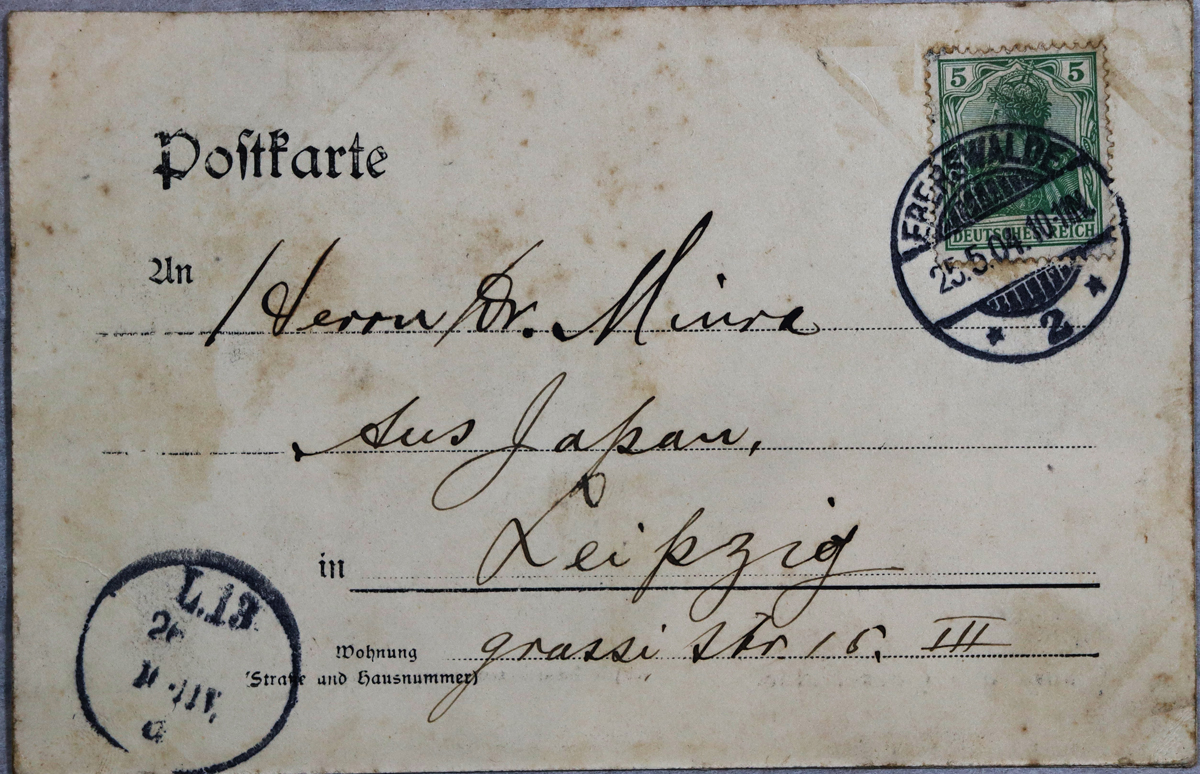 Postkarte
5 5
DEUTSCHES REICH
EBERSWALDE
25.5.04. 10-11N.
* 2 *
An Herrn Dr. Miura
Aus Japan,
in Leipzig
Wohnung grassi str. 16. III
(Straße und Hausnummer)
L.13.
26